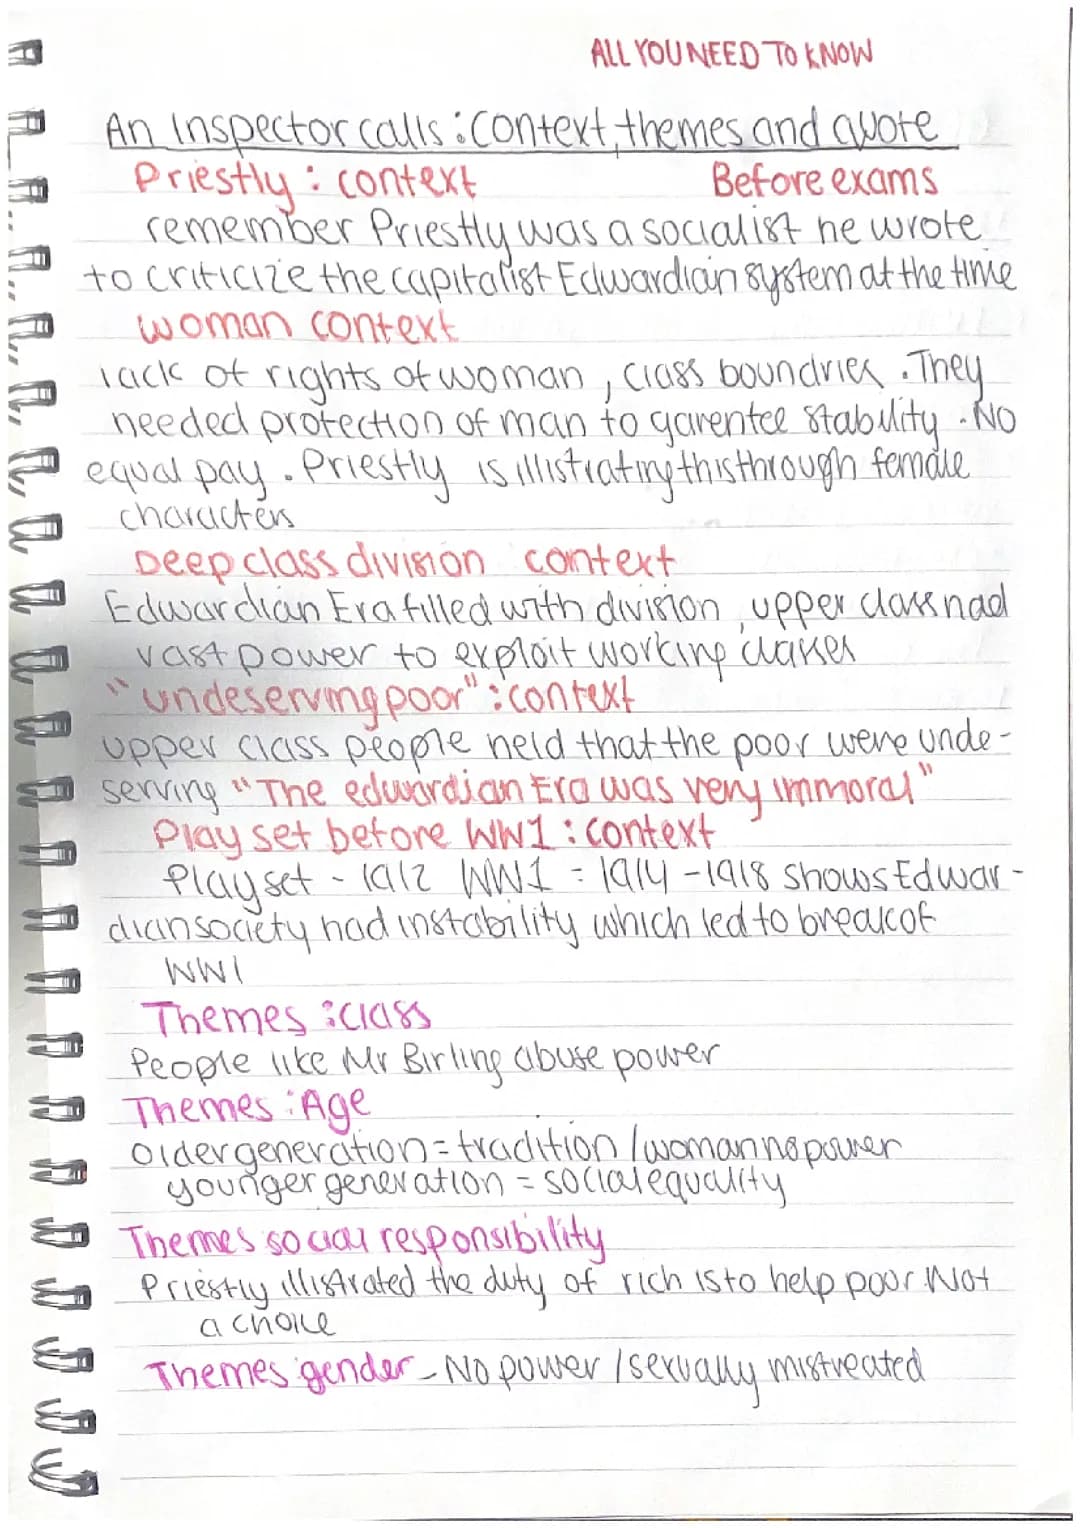 ALL YOU NEED TO KNOW
An Inspector calls : context, themes and quote
Priestly : context Before exams
remember Priestly was a socialist he wrote
to criticize the capitalist Edwardian system at the time
woman context
lack of rights of woman , class boundries . They
needed protection of man to garentee stability . No
equal pay . Priestly is illistrating this through female
characters
Deep class division context
Edwardian Era filled with division , upper class had
vast power to exploit working classes
"undeserving poor" : context
upper class people held that the poor were unde-
serving "The edwardian Era was very immoral"
Play set before WW1 : context
Play set - 1912 WW1 = 1914 - 1918 shows Edwar-
dian society had instability which led to break of
WW1
Themes : class
People like Mr Birling abuse power
Themes : Age
Older generation = tradition / woman no power
younger generation = social equality
Themes social responsibility
Priestly illistrated the duty of rich is to help poor Not
a choice
Themes gender - No power / sexually mistreated